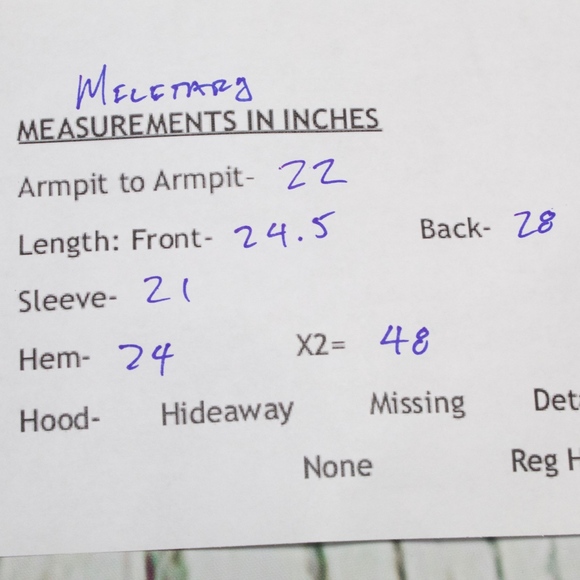 MELETARY
MEASUREMENTS IN INCHES
Armpit to Armpit- 22
Length: Front- 24.5 Back- 28
Sleeve- 21
Hem- 24 X2= 48
Hood- Hideaway Missing Det
None Reg H